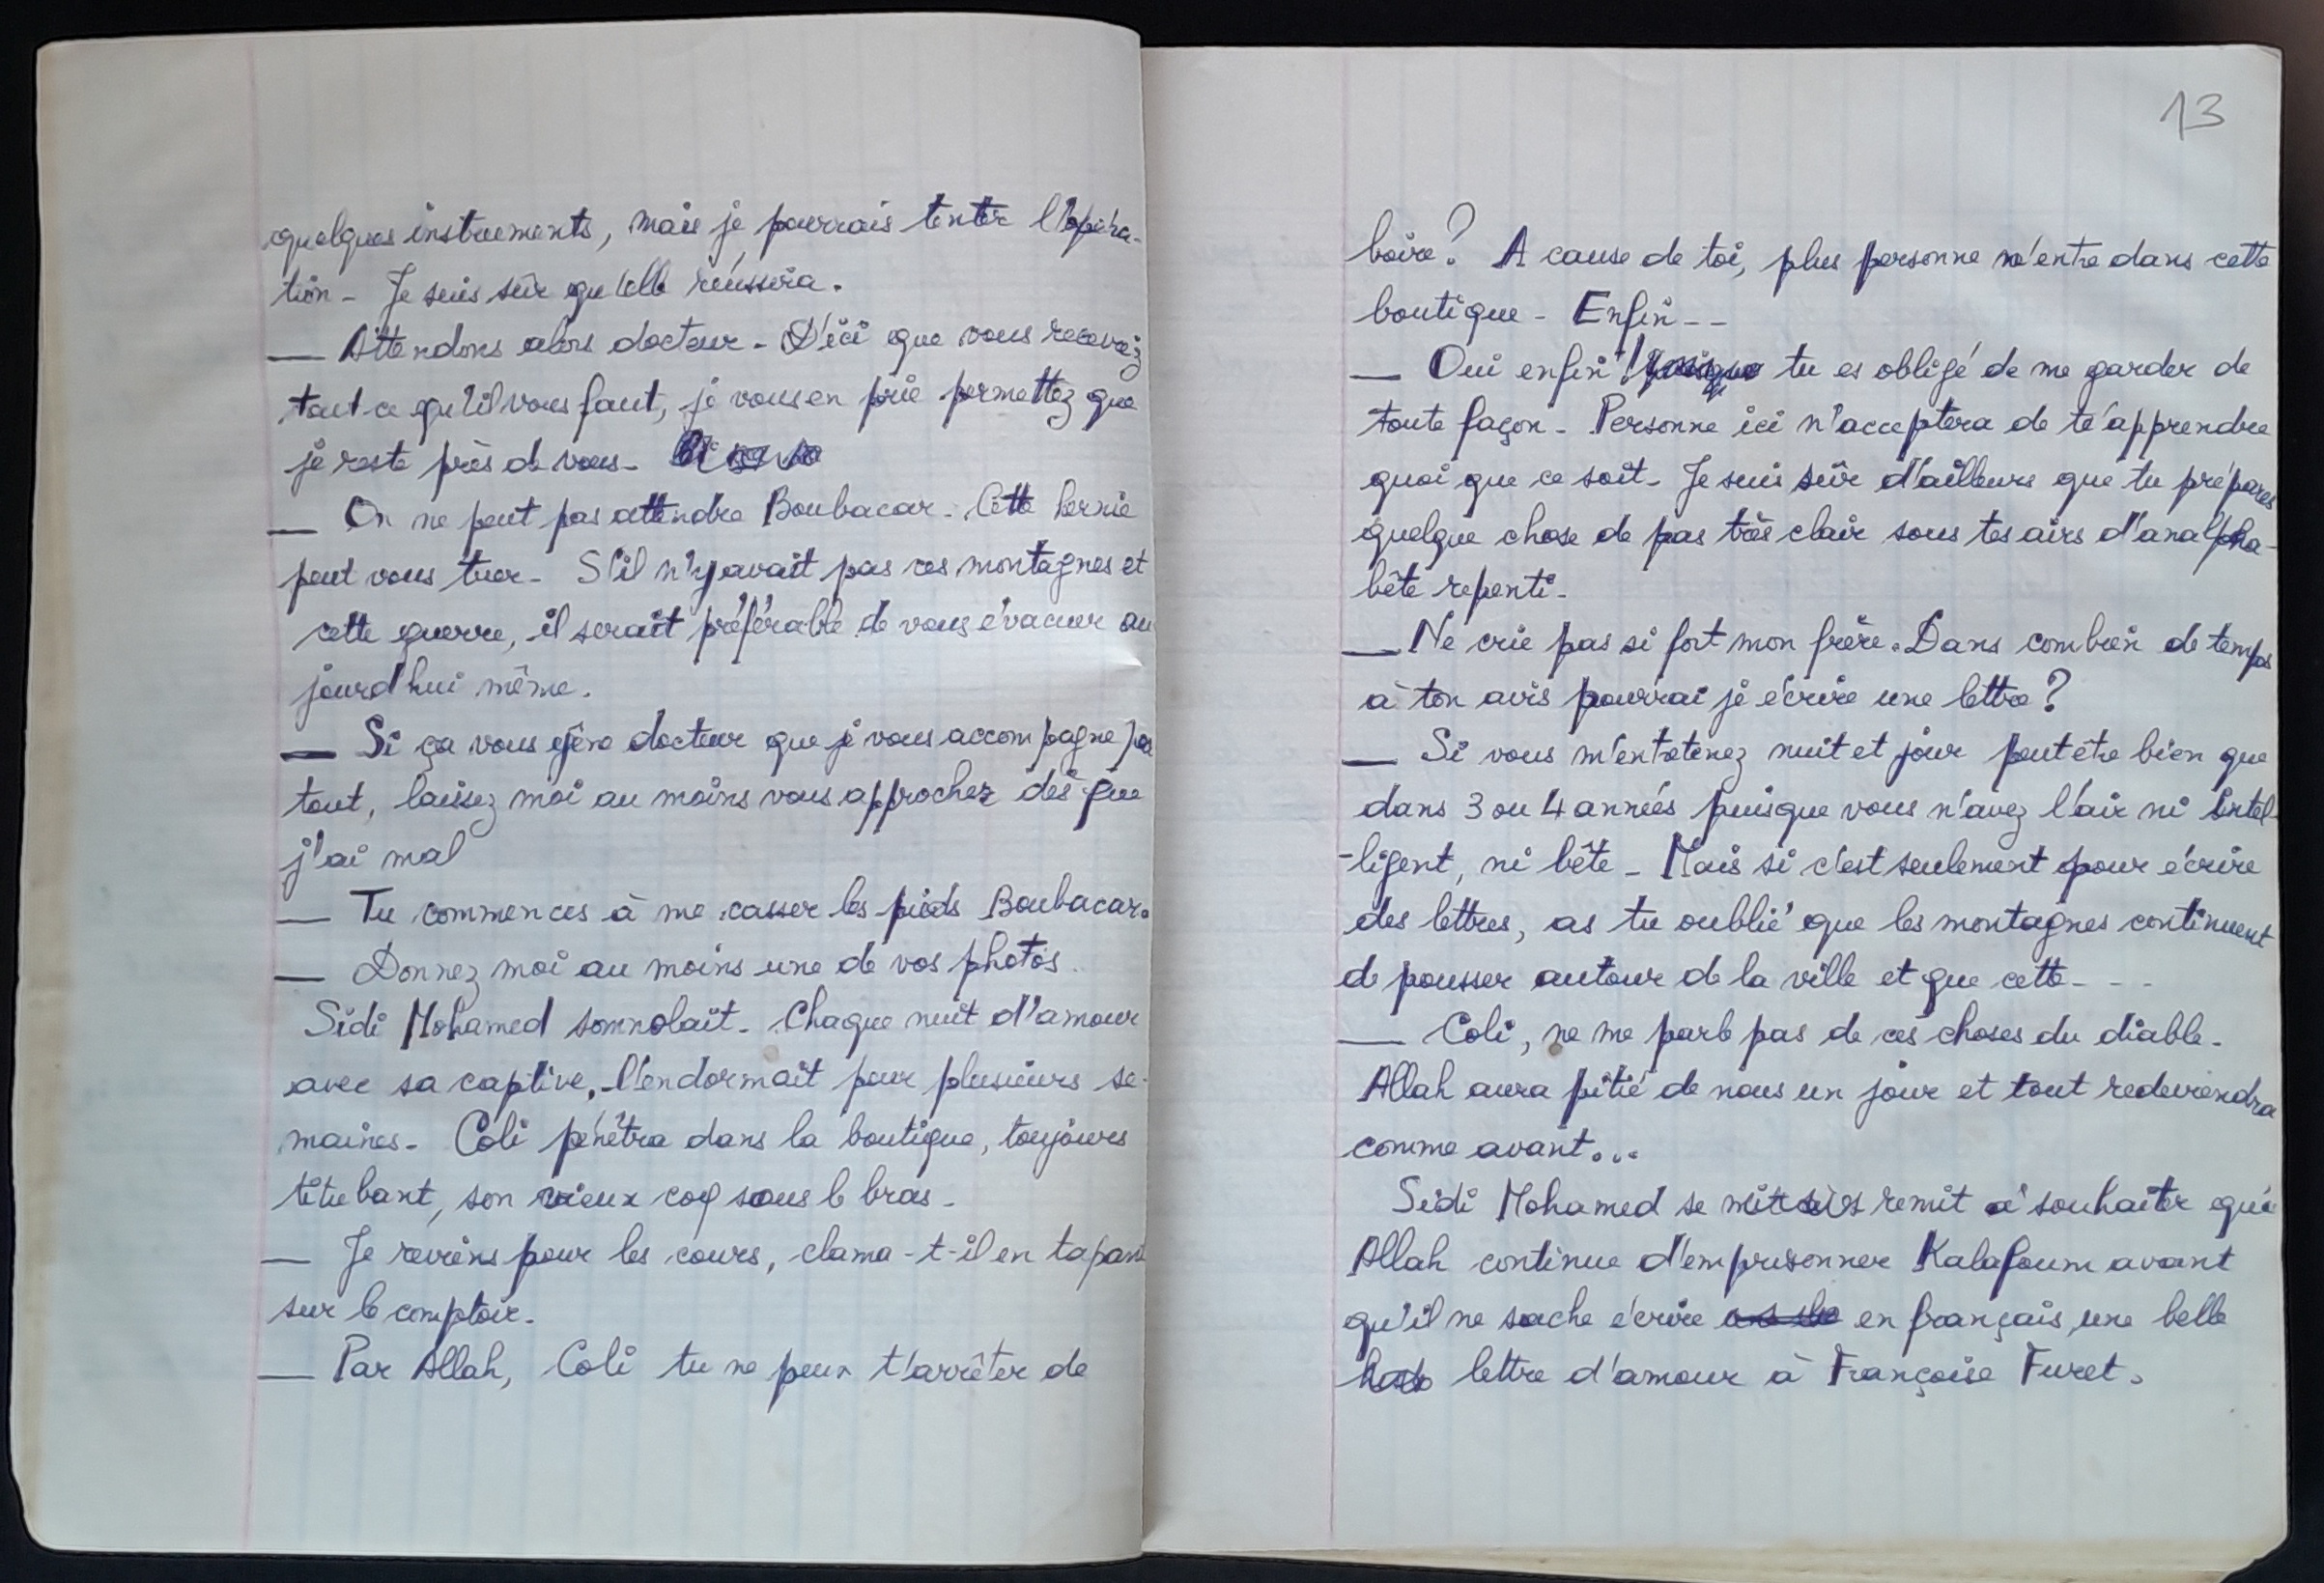 quelques instruements, mais je pourrais tenter l'opéra-
tion - Je suis sûr qu'elle réussira.
— Attendons alors docteur - D'ici que vous recevez
tout ce qu'il vous faut, je vous en prie permettez que
je reste près de vous -
— On ne peut pas attendre Boubacar - Cette hernie
peut vous tuer - S'il n'y avait pas ces montagnes et
cette guerre, il serait préférable de vous évacuer au
jourd'hui même.
— Si ça vous gène docteur que je vous accompagne par
tout, laissez moi au moins vous approchez dès que
j'ai mal
— Tu commences à me casser les pieds Boubacar.
— Donnez moi au moins une de vos photos.
Sidi Mohamed somnolait - Chaque nuit d'amour
avec sa captive, l'endormait pour plusieurs se-
maines - Coli pénétra dans la boutique, toujours
titubant, son vieux coq sous le bras -
— Je reviens pour les cours, clama-t-il en tapant
sur le comptoir.
— Par Allah, Coli tu ne peux t'arrêter de
13
boire? A cause de toi, plus personne n'entre dans cette
boutique - Enfin --
— Oui enfin! tu es obligé de me garder de
toute façon - Personne ici n'acceptera de t'apprendre
quoi que ce soit - Je suis sûr d'ailleurs que tu prépares
quelque chose de pas très clair sous tes airs d'analpha-
bète repenti -
— Ne crie pas si fort mon frère. Dans combien de temps
à ton avis pourrai je écrire une lettre?
— Si vous m'entretenez nuit et jour peut être bien que
dans 3 ou 4 années puisque vous n'avez l'air ni intel-
-ligent, ni bête - Mais si c'est seulement pour écrire
des lettres, as tu oublié que les montagnes continuent
de pousser autour de la ville et que cette - - -
— Coli, ne me parle pas de ces choses du diable -
Allah aura pitié de nous un jour et tout redeviendra
comme avant...
Sidi Mohamed se remit à souhaiter que
Allah continue d'emprisonner Kalafoum avant
qu'il ne sache écrire en français, une belle
lettre d'amour à Françoise Furet.